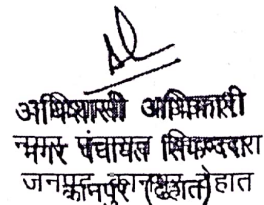 अधिशासी अधिकारी
नगर पंचायत सिकन्दरा
कानपुर (देहात)
जनपद कानपुर देहात